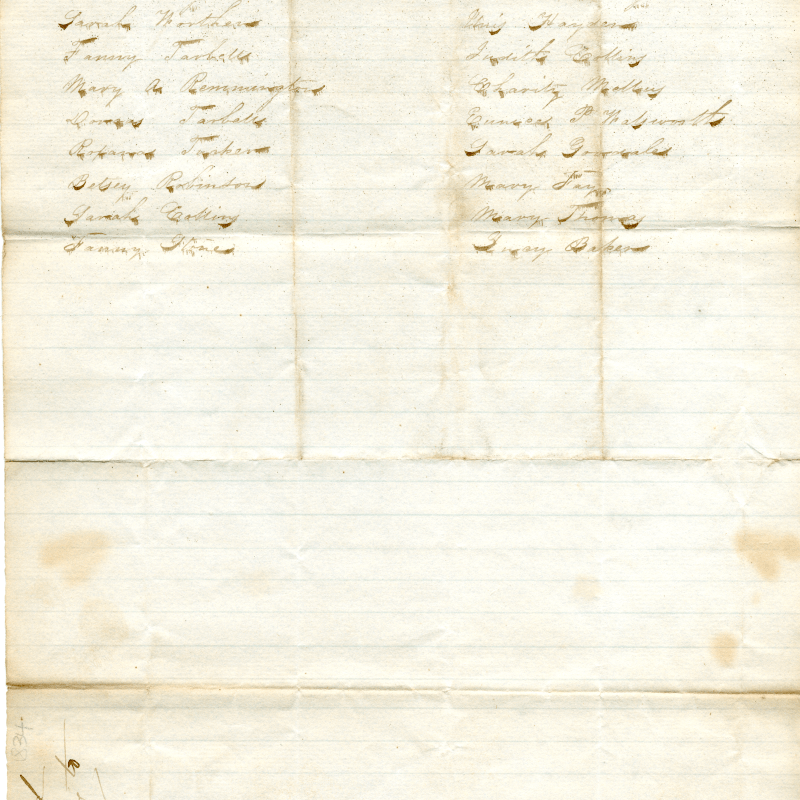 Sarah Worthen
Fanny Tarbell
Mary A Remmington
Dorcas Tarbell
Roxanna Tucker
Betsey Robinson
Sariah Collins
Fanny Stone
Hayden
Judith Collins
Charity Mellus
Eunice P Watsworth
Sarah Gonsales
Mary Fay
Mary Thomas
Baker
834